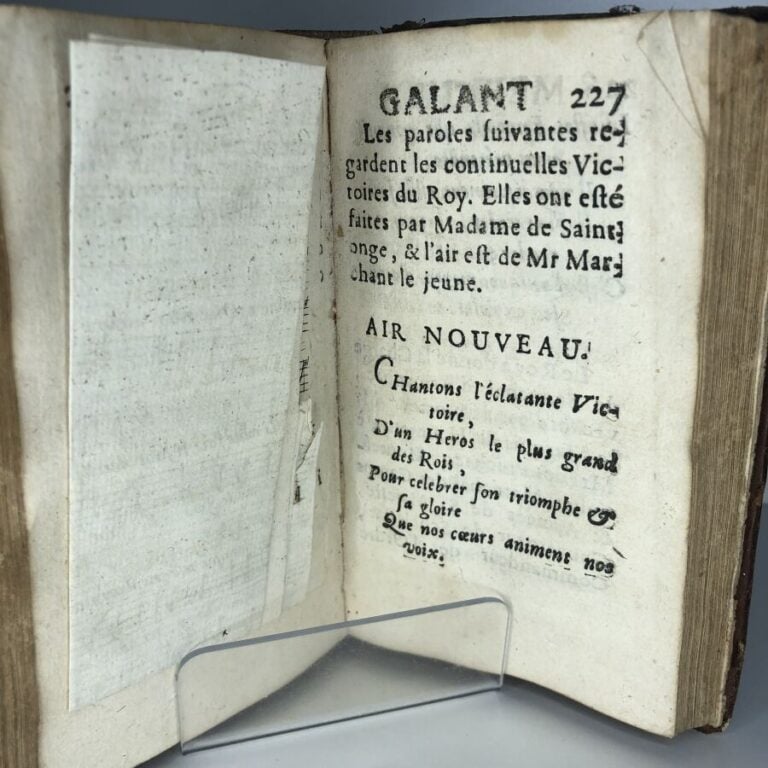 GALANT 227
Les paroles ſuivantes re-
gardent les continuelles Vic-
toires du Roy. Elles ont eſté
faites par Madame de Saint-
onge, & l'air eſt de Mr Mar-
chant le jeune.
AIR NOUVEAU.
CHantons l'éclatante Vic-
toire,
D'un Heros le plus grand
des Rois,
Pour celebrer ſon triomphe &
ſa gloire
Que nos cœurs animent nos
voix.